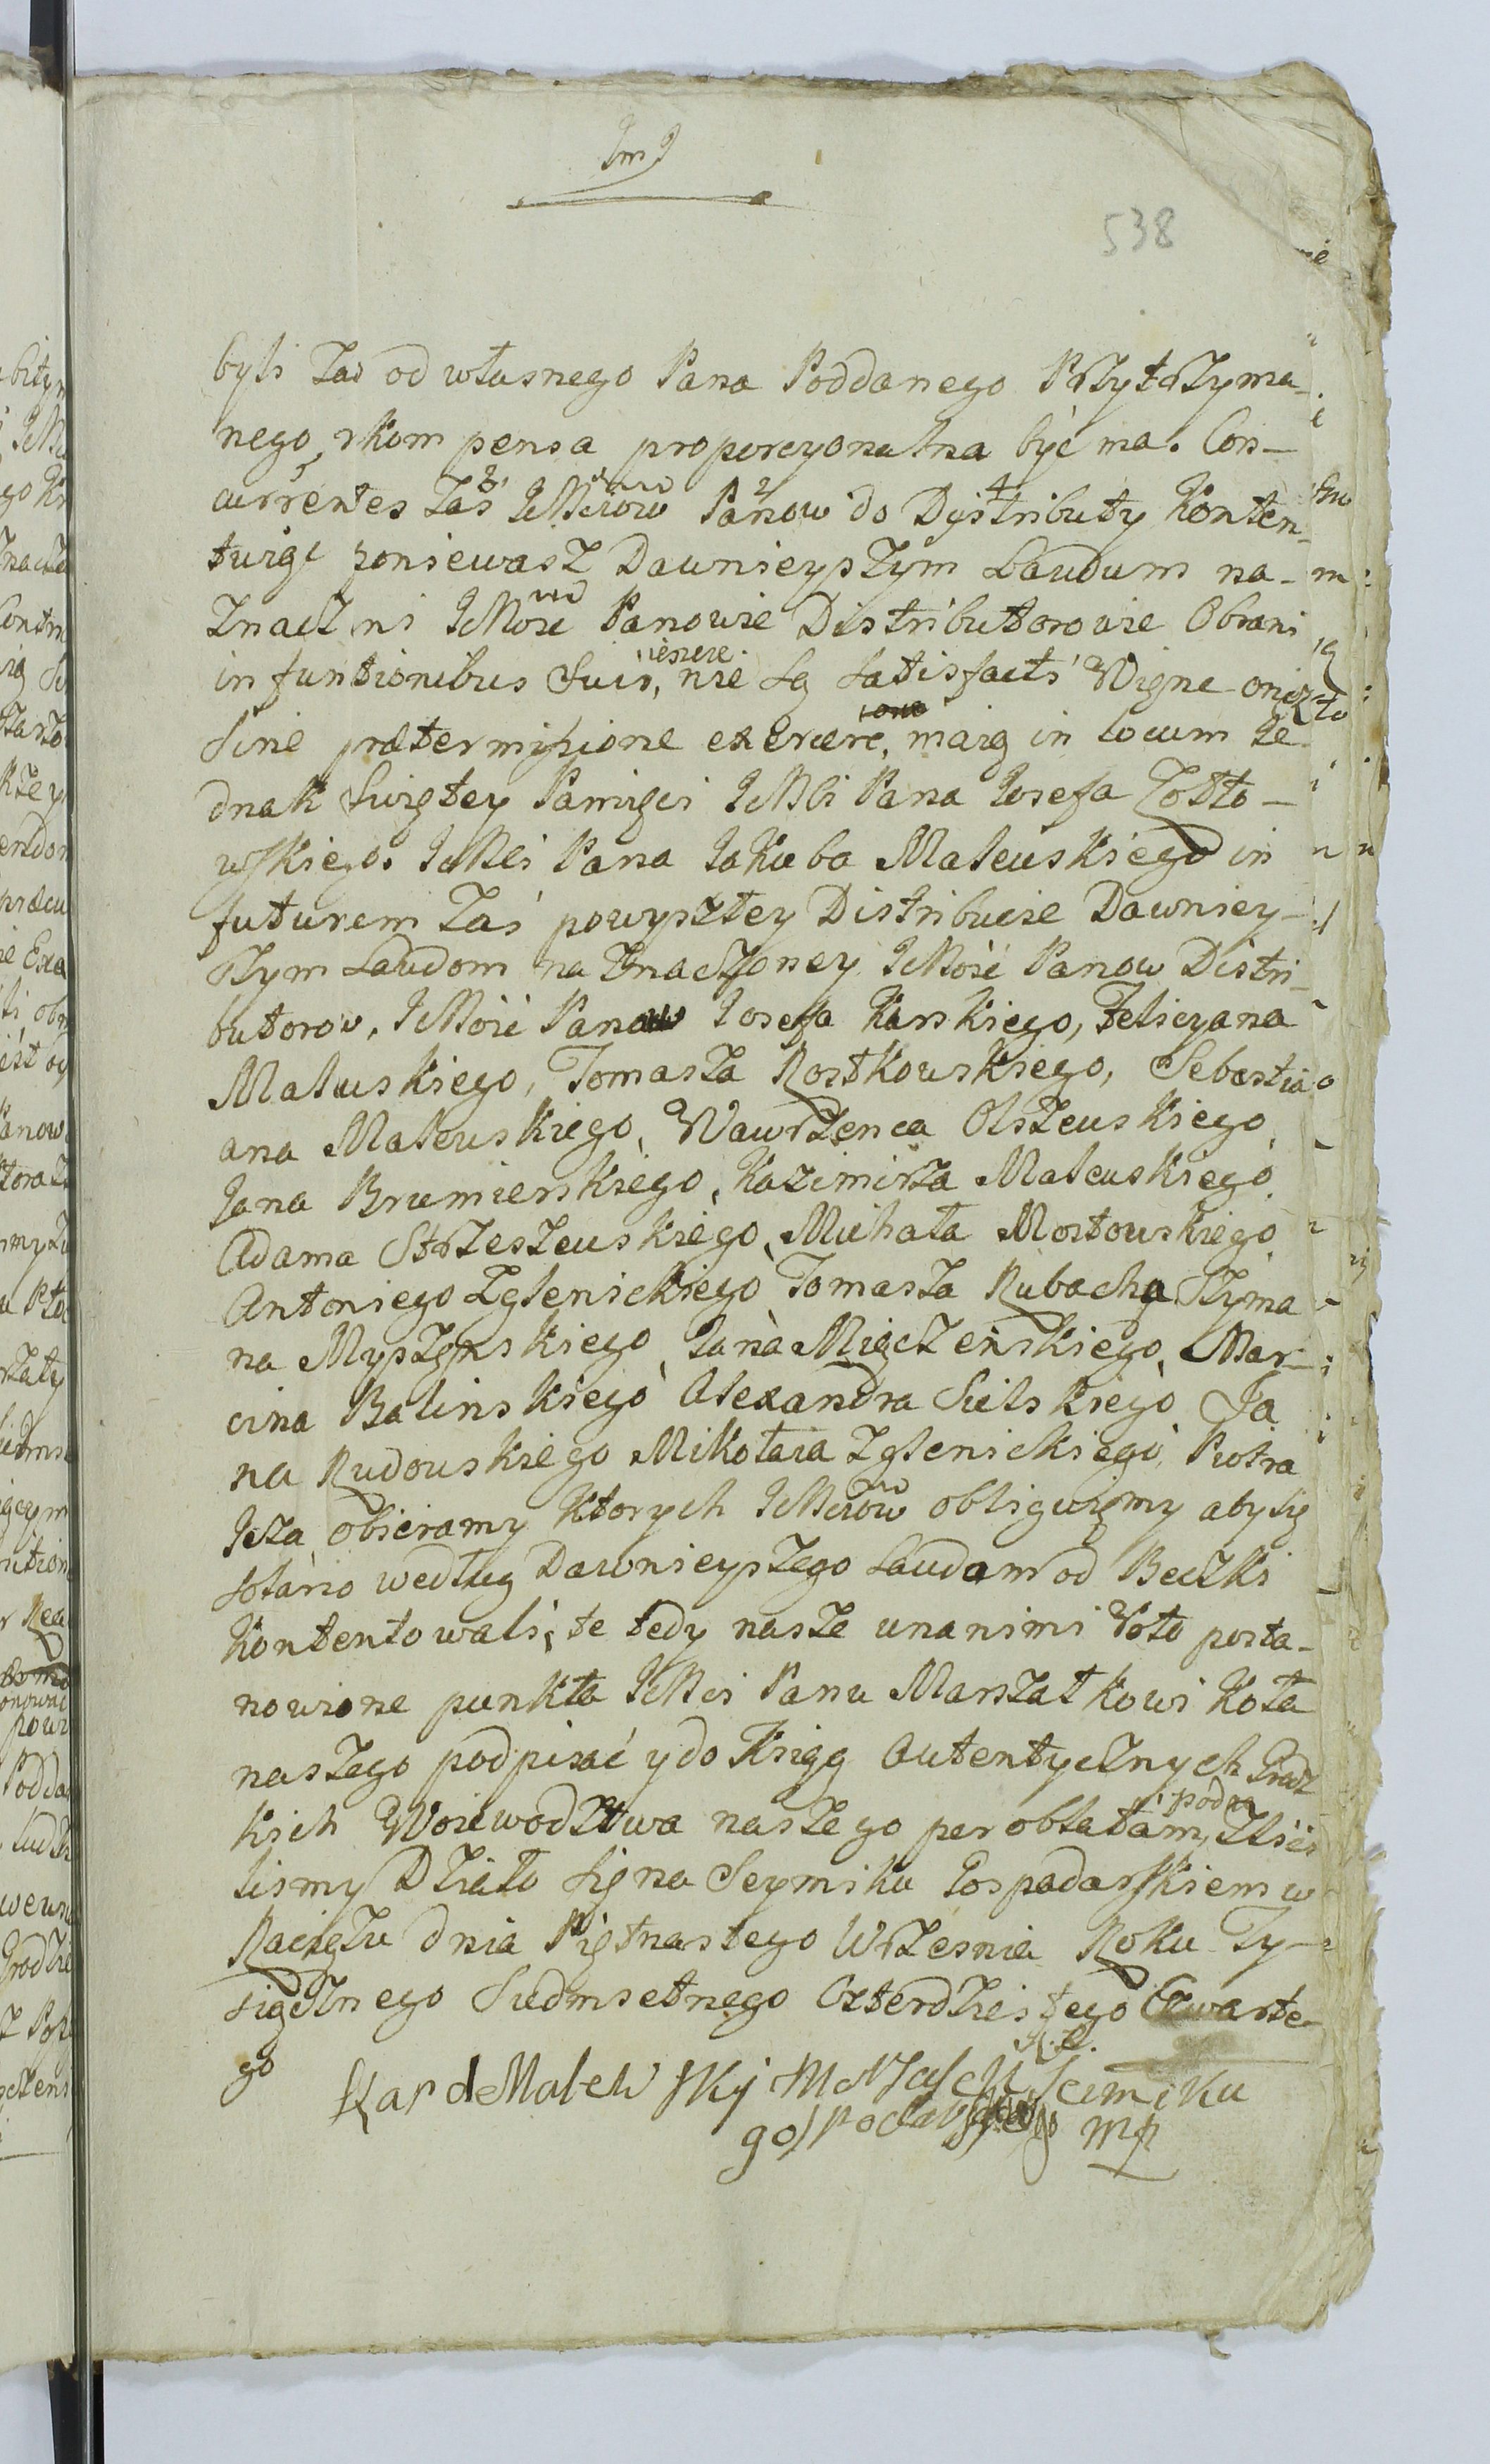 538
byli zaś od własnego Pana Poddanego Przytrzyma-
nego, rkompensa proporcyonalna być ma. Con-
currentes zaś IchMciów Panow do Dystributy Konten-
tuiąc poniewasz Dawnieyszym Laudum na-
znaczeni IchMość Panowie Distributorowie Obrani
in funtionibus suis, ieszcze nie są satisfacti Więnc onęż
sine prætermissione exercere, maią in locum Je
dnak Swiętey Pamięci JchMści Pana Josefa Zołto-
wskiego. JchMci Pana Jakuba Malewskiego in
futurem zaś powyszley Distribucie Dawniey-
szym Laudom na znaczoney JchMość Panow Distri-
butorow. JchMość Panow Josefa Karskiego, Felicyana
Malewskiego, Tomasza Rostkowskiego, Sebastia
ana Malewskiego, Wawrzenca Olszewskiego,
Jana Brumierskiego, Kazimirza Malewskiego
Adama Strzeszewskiego, Michała Mostowskiego
Antoniego Zglenickiego Tomasza Rubacha Szyma
na Myszenskiego, Jana Mięczenskiego, Mar-
cina Balinskiego Alexandra Sielskiego Ja
na Rudowskiego Mikołaia Zglenickiego, Piotra
Jeża obieramy ktorych IchMciów obliguięmy aby się
solario według Dawnieyszego Laudam od Beczki
kontentowali; te tedy nasze unanimi Voto posta-
nowione punkta JchMci Panu Marszałkowi Koła
naszego podpisać y do Xiąg Autentycznych Grodz
kich Woiewodztwa naszego per oblatam, podac zlsies
lismy Działo się na Seymiku Gospadarskiem w
Raciążu dnia Piętnastego Wrzesnia Roku Ty-
siącznego Siedmsetnego Czterdziestego Czwarte-
go
Malewskÿ Marszałek Seimiku
gospodarskiego mp